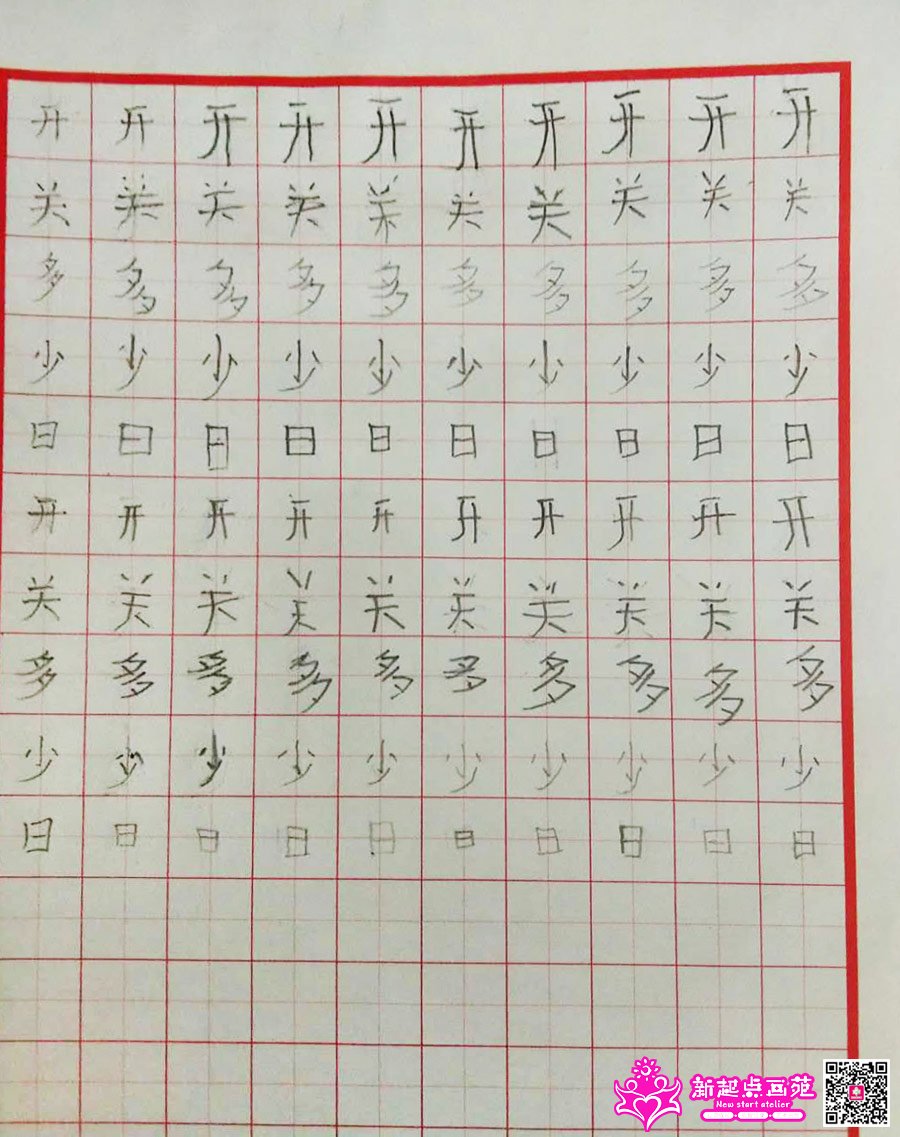 开开开开开开开开开开
关关关关关关关关关关
多多多多多多多多多多
少少少少少少少少少少
日日日日日日日日日日
开开开开开开开开开开
关关关关关关关关关关
多多多多多多多多多多
少少少少少少少少少少
日日日日日日日日日日
新起点画苑
New start atelier